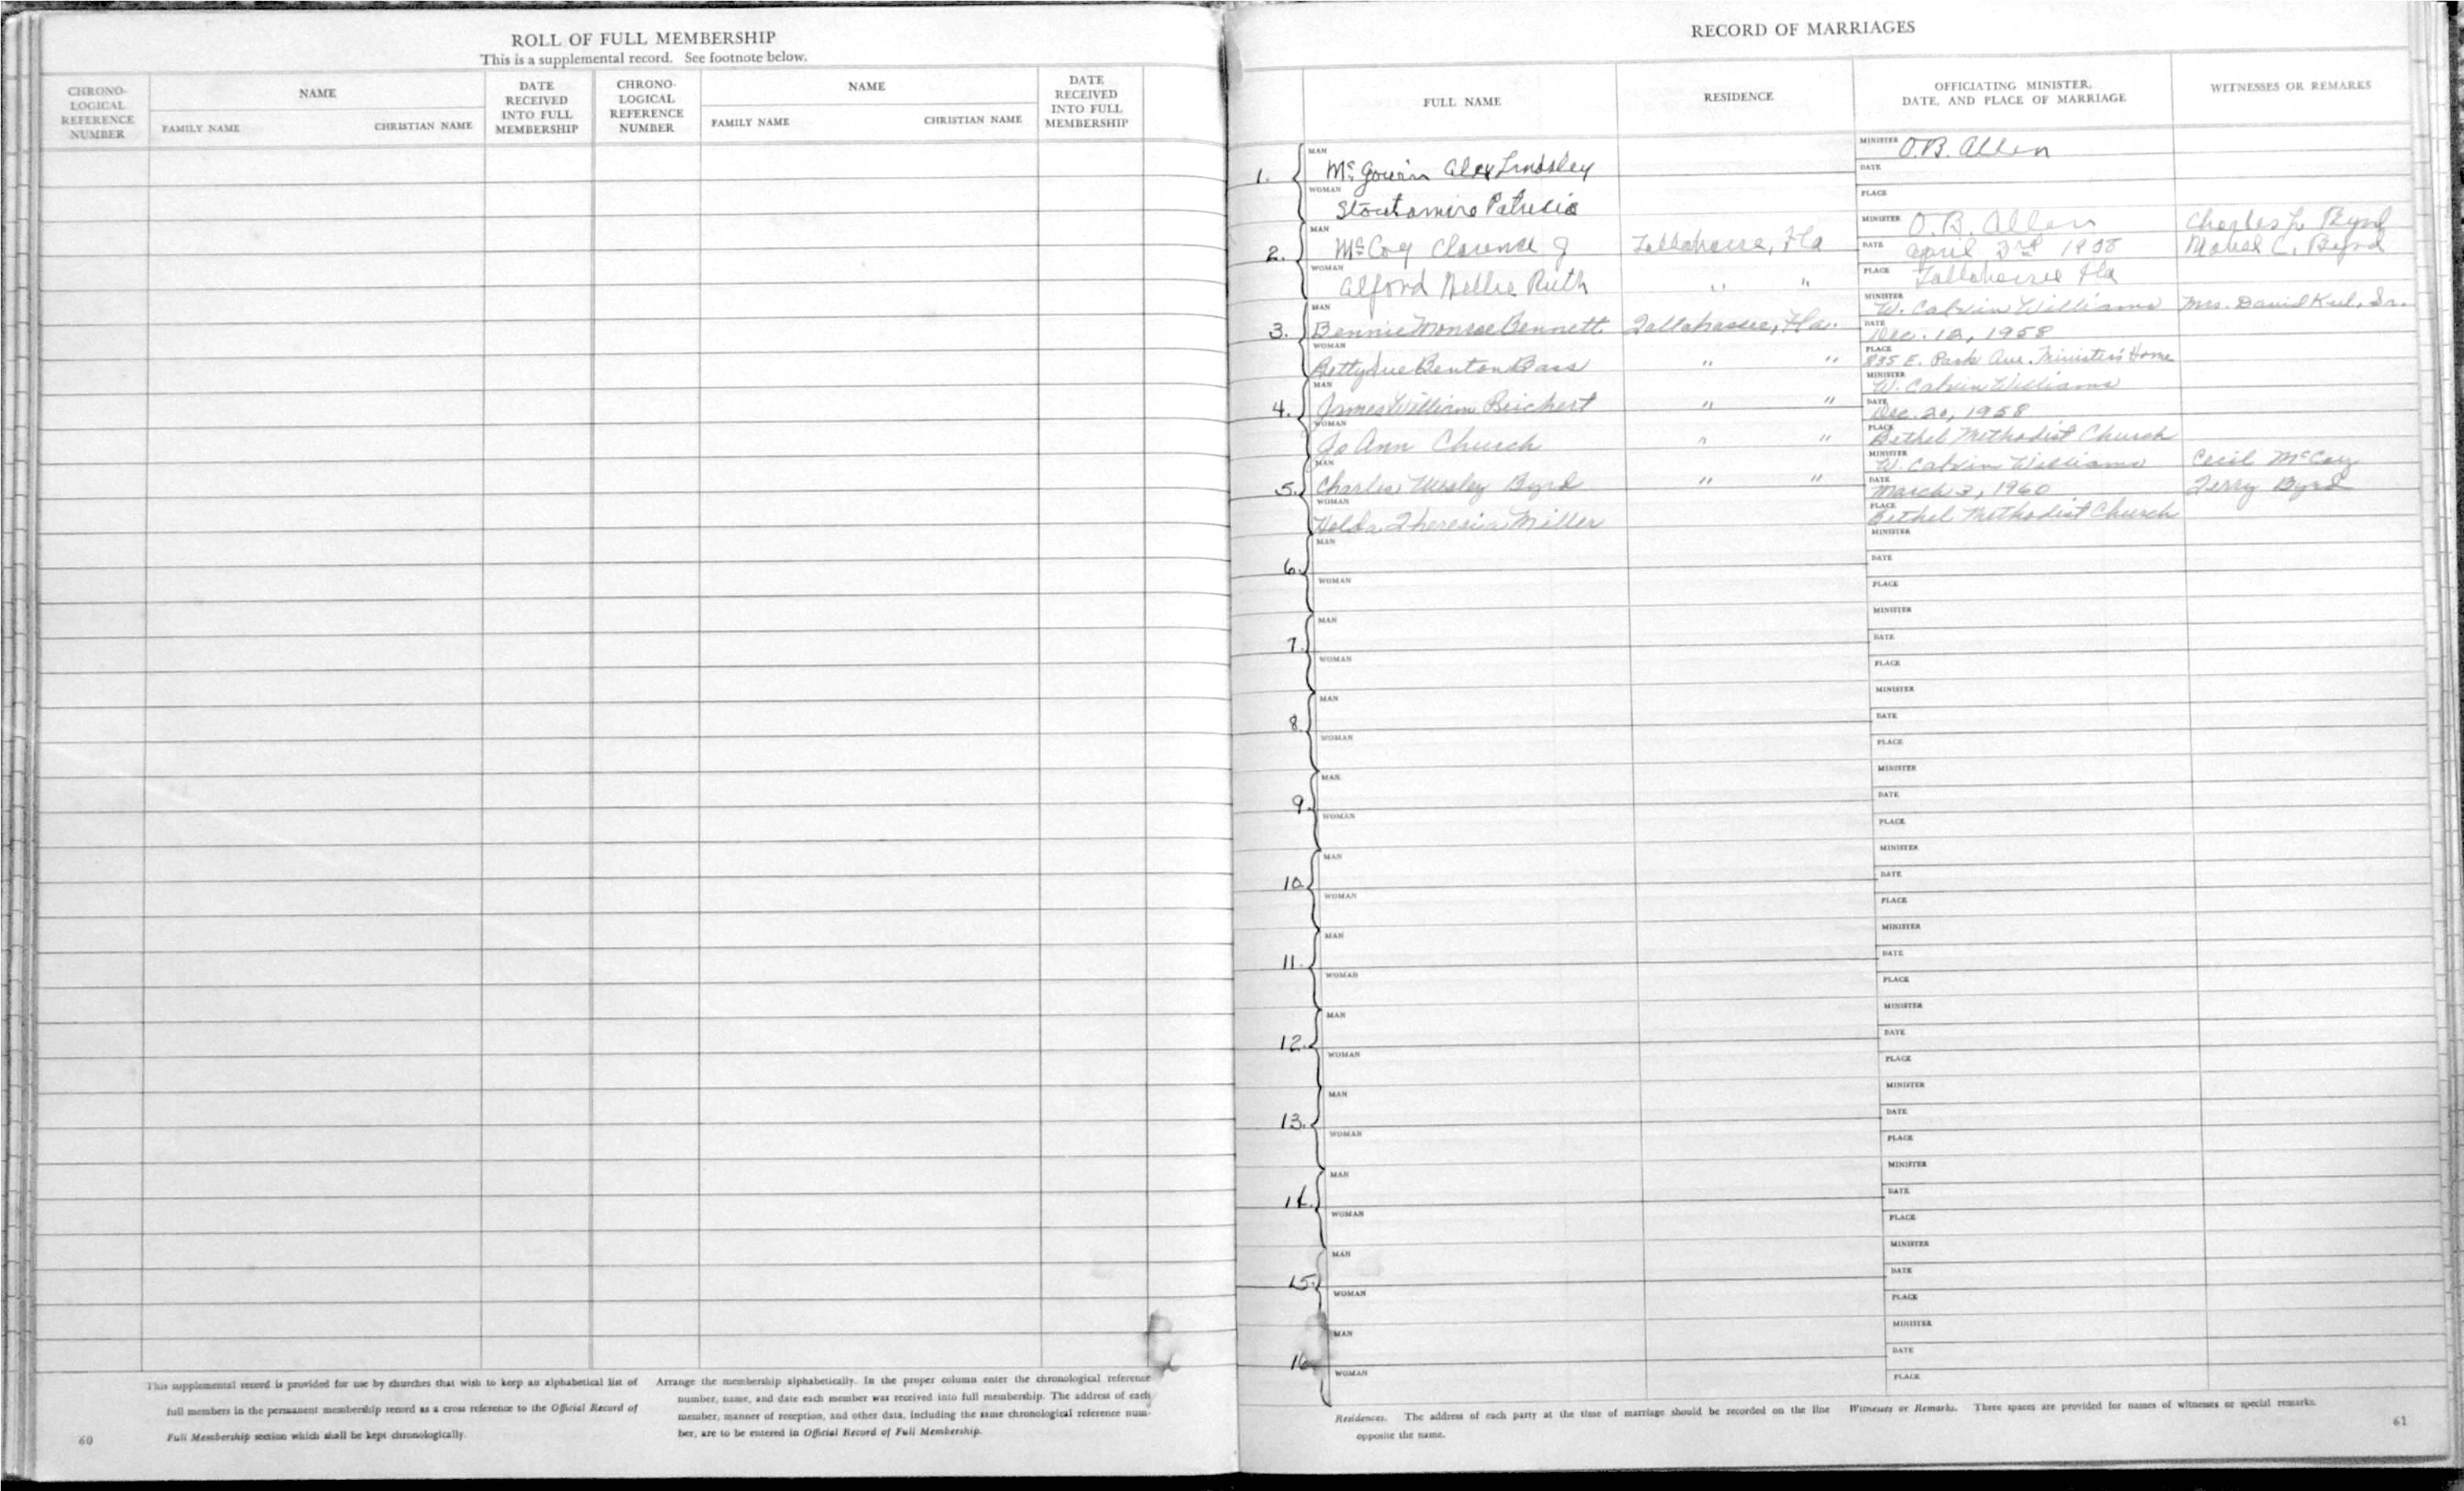 ROLL OF FULL MEMBERSHIP
This is a supplemental record. See footnote below.
CHRONO-LOGICAL REFERENCE NUMBER
NAME
FAMILY NAME CHRISTIAN NAME
DATE RECEIVED INTO FULL MEMBERSHIP
CHRONO-LOGICAL REFERENCE NUMBER
NAME
FAMILY NAME CHRISTIAN NAME
DATE RECEIVED INTO FULL MEMBERSHIP
This supplemental record is provided for use by churches that wish to keep an alphabetical list of
full members in the permanent membership record as a cross reference to the Official Record of
Full Membership section which shall be kept chronologically.
Arrange the membership alphabetically. In the proper column enter the chronological reference
number, name, and date each member was received into full membership. The address of each
member, manner of reception, and other data, including the same chronological reference num-
ber, are to be entered in Official Record of Full Membership.
60
RECORD OF MARRIAGES
FULL NAME
RESIDENCE
OFFICIATING MINISTER,
DATE, AND PLACE OF MARRIAGE
WITNESSES OR REMARKS
1.
MAN McGowin Alex Lindsley
WOMAN Stoutamire Patricia
MINISTER O.B. Allen
DATE
PLACE
2.
MAN McCoy Clarence J Tallahassee, Fla
WOMAN Alford Nellie Ruth " "
MINISTER O.B. Allen Charles L. Byrd
DATE April 3rd Byrd
PLACE Tallahassee Fla
3.
MAN Bennie Monroe Bennett Tallahassee, Fla.
WOMAN Betty Sue Benton Bass " "
MINISTER W. Calvin Williams Mrs. David Sr.
DATE Dec. 1958
PLACE 835 E. Park Ave. Minister's Home
4.
MAN James William Beichert " "
WOMAN Jo Ann Church " "
MINISTER W. Calvin Williams
DATE Dec. 20, 1958
PLACE Bethel Methodist Church
5.
MAN Charles Wesley Byrd " "
WOMAN Helda Theresia Miller
MINISTER W. Calvin Williams Cecil McCoy
DATE March 3, 1960 Terry Byrd
PLACE Bethel Methodist Church
6.
MAN
WOMAN
MINISTER
DATE
PLACE
7.
MAN
WOMAN
MINISTER
DATE
PLACE
8.
MAN
WOMAN
MINISTER
DATE
PLACE
9.
MAN
WOMAN
MINISTER
DATE
PLACE
10.
MAN
WOMAN
MINISTER
DATE
PLACE
11.
MAN
WOMAN
MINISTER
DATE
PLACE
12.
MAN
WOMAN
MINISTER
DATE
PLACE
13.
MAN
WOMAN
MINISTER
DATE
PLACE
14.
MAN
WOMAN
MINISTER
DATE
PLACE
15.
MAN
WOMAN
MINISTER
DATE
PLACE
16
MAN
WOMAN
MINISTER
DATE
PLACE
Residences. The address of each party at the time of marriage should be recorded on the line
opposite the name.
Witnesses or Remarks. Three spaces are provided for names of witnesses or special remarks.
61